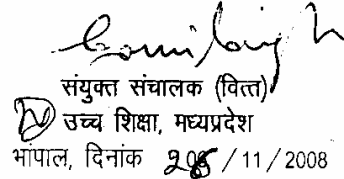 संयुक्त संचालक (वित्त)
उच्च शिक्षा, मध्यप्रदेश
भोपाल, दिनांक / 11 / 2008